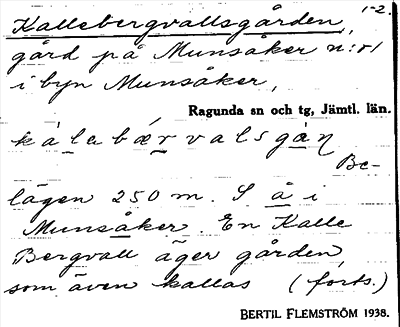 1-2.
Kallebergvallsgården,
gård på Munsåker n:r 1
i byn Munsåker,
Ragunda sn och tg, Jämtl. län.
kálebærvalsgàn
Be-
lägen 250 m. S å i
Munsåker. En Kalle
Bergvall äger gården,
som även kallas (forts.)
BERTIL FLEMSTRÖM 1938.